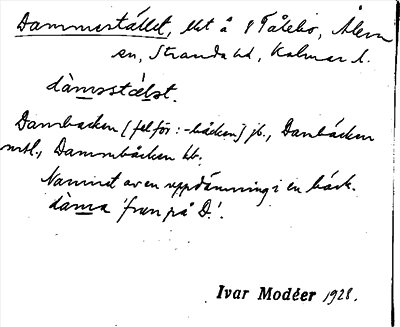 Dammerstället, lht å § Tålebo, Ålem
sn, Stranda hd, Kalmar l.
dàmsstælst.
Dambacken [fel för: -båcken] jb., Danbäcken
mtl., Dammbåcken hb.
Namnet av en uppdämning i en bäck.
dàma 'frun på D.'.
Ivar Modéer 1928.